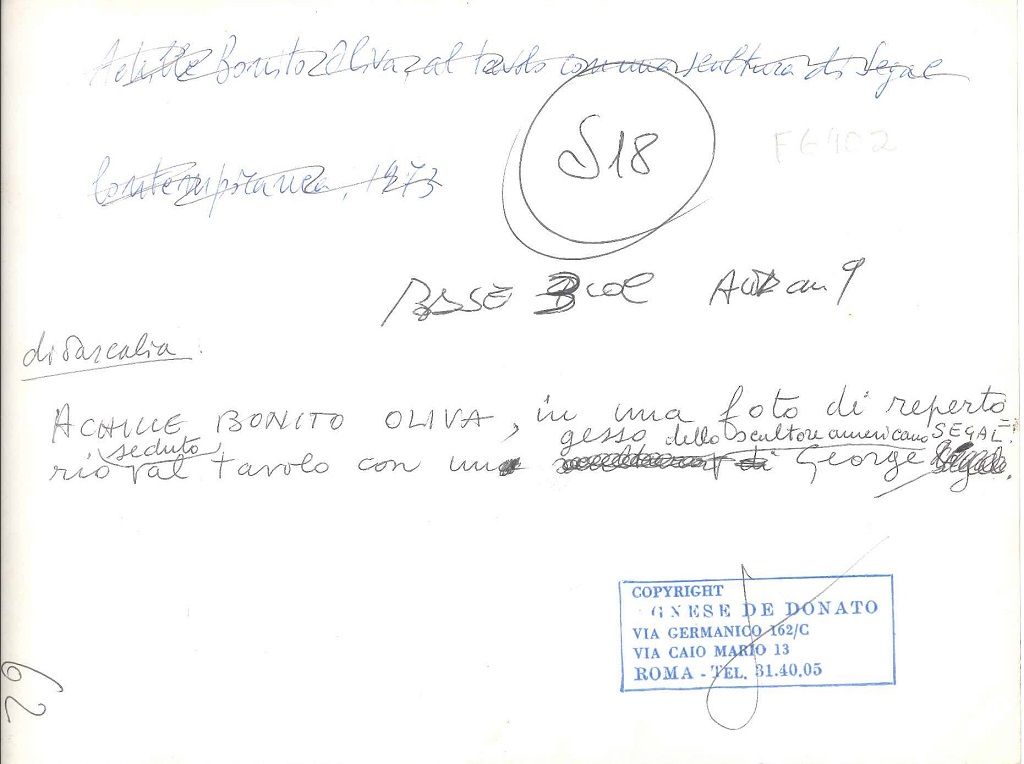 Achille Bonito Oliva, al tavolo con una scultura di Segal
S18
FG402
Contemporanea, 1973
BASE 3 col
didascalia:
ACHILLE BONITO OLIVA, in una foto di reperto=
gesso dello scultore americano SEGAL.
seduto
rio al tavolo con un di George
COPYRIGHT
GNESE DE DONATO
VIA GERMANICO 162/C
VIA CAIO MARIO 13
ROMA - TEL. 31.40.05
62